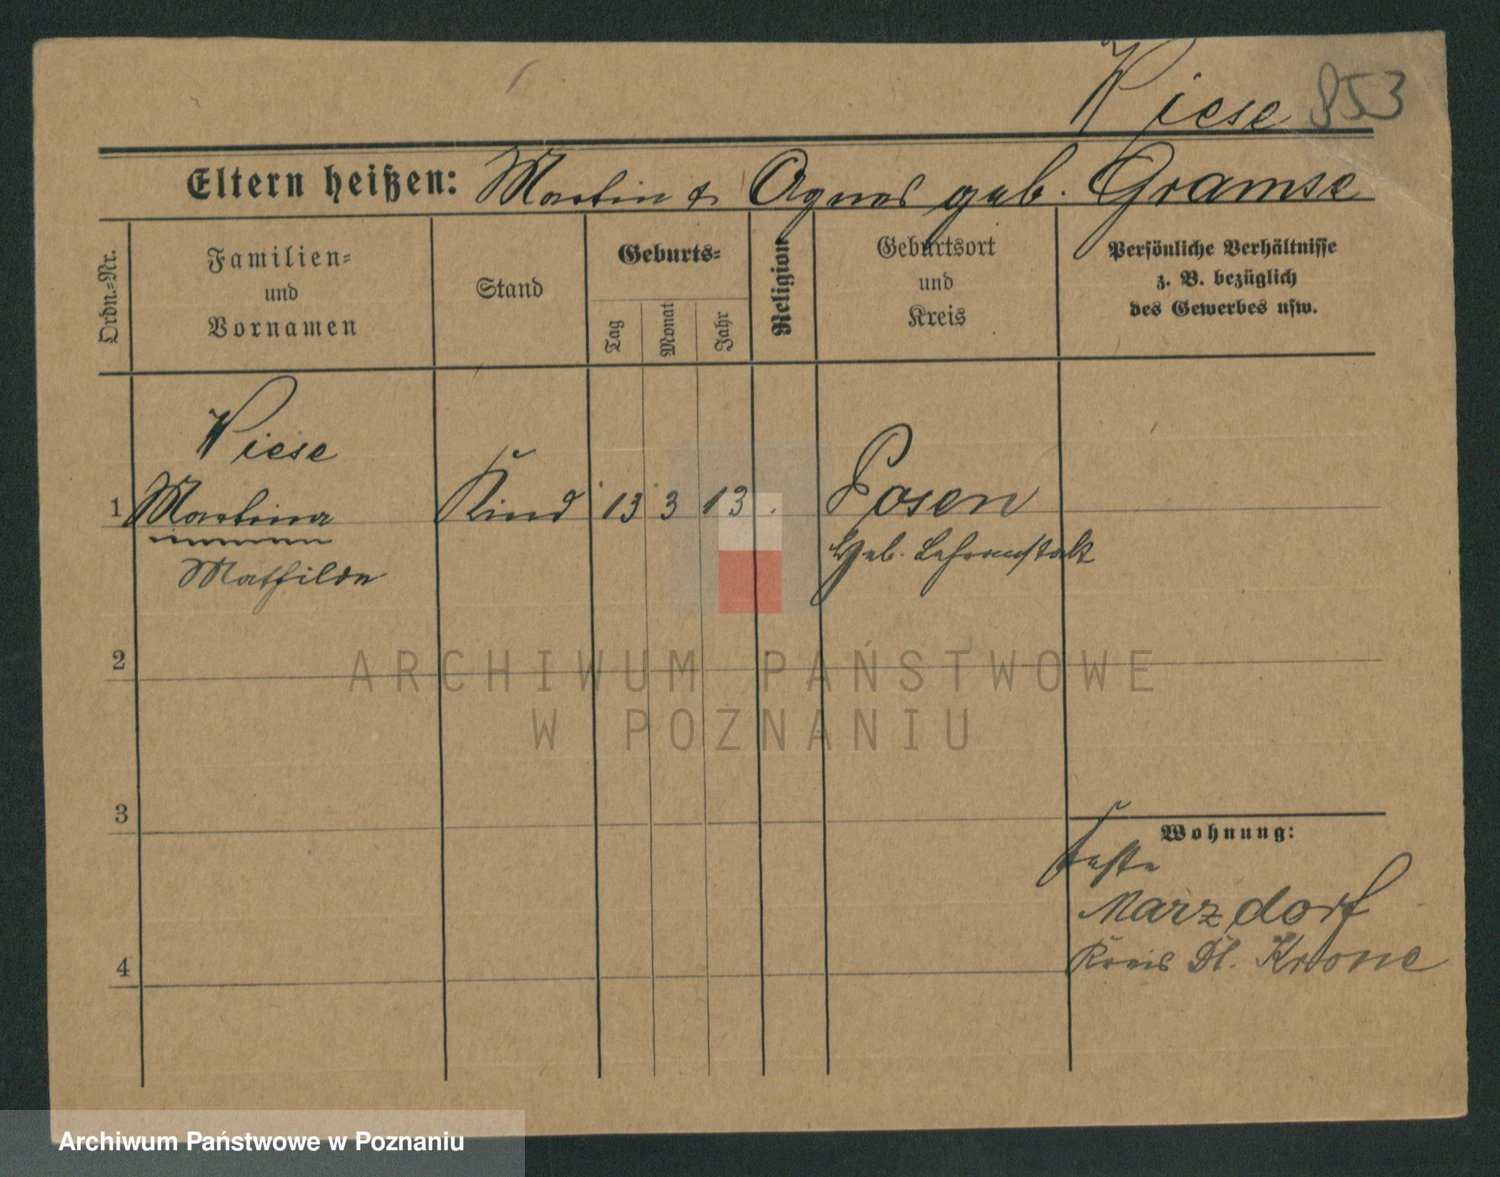 Wiese 853
Eltern heißen: Martin & Agnes geb. Gramse
Ordn.-Nr.
Familien-
und
Vornamen
Stand
Geburts-
Tag
Monat
Jahr
Religion
Geburtsort
und
Kreis
Persönliche Verhältnisse
z. B. bezüglich
des Gewerbes usw.
Wiese
1 Martina Kind 13 3 13 . Posen
Mathilde Heb. Lehranstalt
2
ARCHIWUM PAŃSTWOWE
W POZNANIU
3
Wohnung:
Marzdorf
4 Kreis Dt. Krone
Archiwum Państwowe w Poznaniu